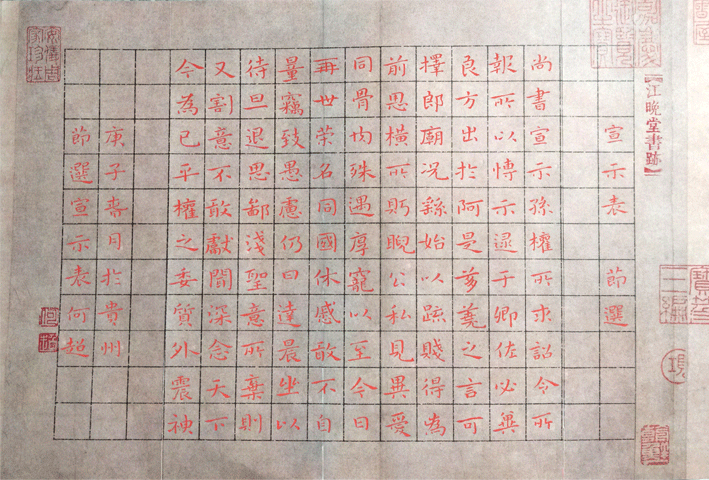 【江晚堂書跡】
宣示表 節選
尚書宣示孫權所求詔令所
報所以博示逮于卿佐必冀
良方出於阿是芻蕘之言可
擇郎廟況繇始以疏賤得為
前恩橫所眄睨公私見異愛
同骨肉殊遇厚寵以至今日
再世榮名同國休慼敢不自
量竊致愚慮仍日達晨坐以
待旦退思鄙淺聖意所棄則
又割意不敢獻聞深念天下
今為已平權之委質外震神
庚子春月於貴州
節選宣示表何超